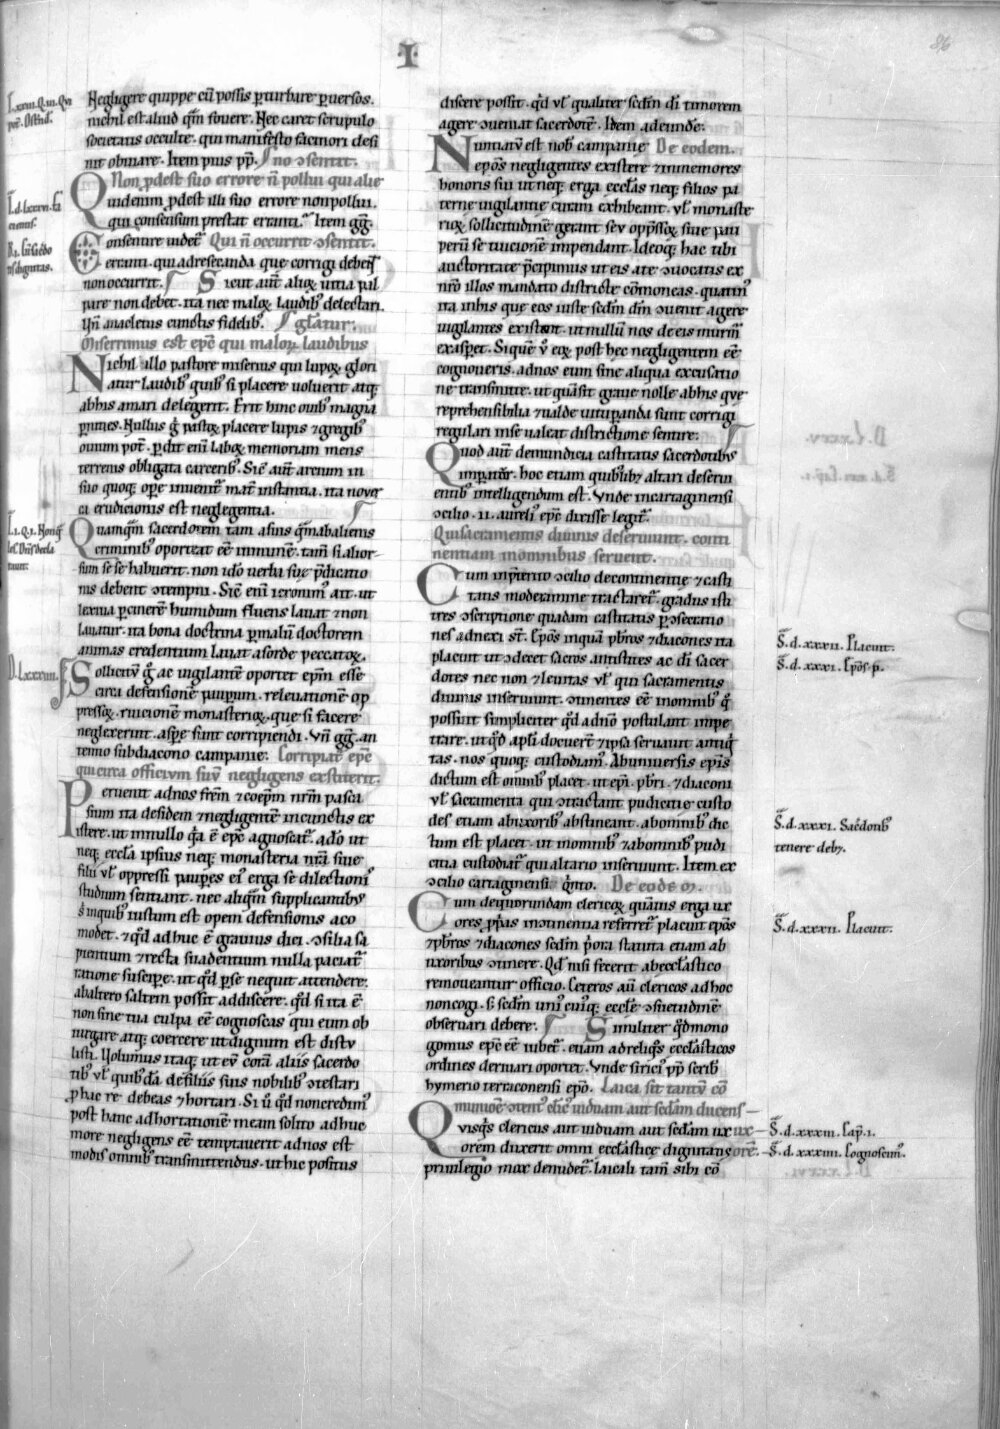 ·I·
86
Negligere quippe cũ possis p̱turbare p̱versos.
nichil est aliud q̃m fovere. Nec caret scrupulo
societatis occulte. qui manifesto facinori desi
nit obviare. Item pius pp̃. no ɔsentit.
Non p̃dest suo errore ñ pollui qui alie
Quidenim p̃dest illi suo errore non pollui.
qui consensum prestat erranti. Item gg̃.
Consentire videt̃ Qui ñ occurrit ɔsentit.
erranti. qui ad resecanda que corrigi debent
non occurrit. Sicut aut̃ alioꝝ vitia pal
pare non debet. ita nec maloꝝ laudibꝰ delectari.
Vñ anacletus cunctis fidelibꝰ. gl̃atur.
Miserrimus est ep̃c qui maloꝝ laudibus
Nichil illo pastore miserius qui lupoꝝ glori
atur laudibꝰ quibꝰ si placere voluerit atq;
ab his amari delegerit. Erit hinc ovibꝰ magna
p̱nities. Nullus g̊ pastoꝝ placere lupis ⁊ gregibꝰ
ovium pot̃. p̱dit eni laboꝝ memoriam mens
terrenis obligata carceribꝰ. Sic̃ aut̃ artium in
suo quoq; ope invenit̃ mat̃ instantia. ita nover
ca erudicionis est neglegentia.
Quamq̃m sacerdotem tam a suis q̃m ab alienis
criminibꝰ oporteat eẽ inmunẽ. tam̃ si alior
sum se se habuerit. non id̃o verba sue p̃dicatio
nis debent ɔtempni. Sic̃ eni ieronimꝰ ait. ut
lexiva p̱ cinerẽ humidum fluens lavat ⁊ non
lavatur. ita bona doctrina p̱ malũ doctorem
animas credentium lavat a sorde peccatoꝝ.
Sollicitũ g̊ ac vigilantẽ oportet ep̃m esse
circa defensionẽ paup̱um. relevationẽ op
pressoꝝ. tuicionẽ monasterioꝝ. que si facere
neglexerint. asp̱e sunt corripiendi. Vñ gg̃. an
temio subdiacono campanie. Corripiat̃ ep̃c
qui circa officium suũ negligens exstiterit.
Pervenit ad nos frẽm ⁊ coep̃m nr̃m pasca
sium ita desidem ⁊ negligentẽ in cunctis ex
istere. ut in nullo q̃a ẽ ep̃c agnoscat̃. ad̃o ut
neq; eccl̃a ipsius neq; monasteria nr̃a sive
filii vl̃ oppressi paup̱es eiꝰ erga se dilectionis
studium sentiant. nec aliq̃m supplicantibꝰ
s̃ inquibꝰ iustum est opem defensionis aco
modet. ⁊ qd̃ ad huc ẽ gravius dici. ɔsilia sa
pientium ⁊ recta suadentium nulla paciat̃
ratione suscip̱e. ut qd̃ p̱ se nequit attendere.
ab altero saltem possit addiscere. qd̃ si ita ẽ
non sine tua culpa eẽ cognoscas qui eum ob
iurgare atq; coercere ut dignum est distu
listi. Volumus itaq; ut eũ corã aliis sacerdo
tibꝰ vl̃ quibꝰdã de filiis suis nobilibꝰ ɔtestari
p̱ hac re debeas ⁊ hortari. Si ũ qd̃ non credimꝰ
post hanc adhortationẽ meam solito adhuc
more negligens eẽ temptaverit ad nos est
modis omnibꝰ transmittendus. ut hic positus
discere possit. qd̃ vl̃ qualiter scd̃m dĩ timorem
agere ɔveniat sacerdotẽ. Idem ad eunde.
Nuntiatũ est nobꝭ campanie De eodem.
ep̃os negligentes existere ⁊ inmemores
honoris sui ut neq; erga eccl̃as neq; filios pa
terne vigilantie curam exhibeant. vl̃ monaste
rioꝝ sollicitudinẽ gerant seu opp̃ssoꝝ sive pau
perũ se tuicione impendant. Ideoq; hac tibi
auctoritate p̃cipimus ut eis a te ɔvocatis ex
nr̃o illos mandato districte cõmoneas. quatin̉
ita in his que eos iuste scd̃m dm̃ ɔvenit agere
vigilantes existant. ut nullũ nos de eis murm̃
exasp̱et. Si quẽ ṽ eoꝝ post hec negligentem eẽ
cognoveris. ad nos eum sine aliqua excusatio
ne transmitte. ut q̃ sit grave nolle ab his que
reprehensibilia ⁊ valde vitup̱anda sunt corrigi
regulari in se valeat districtione sentire.
Quod aut̃ de mundicia castitatis sacerdotibus
imp̱atur. hoc etiam quibuslibꝫ altari deservi
entibꝰ intelligendum est. Vnde in cartaginensi
ɔcilio .ii. aurelĩ ep̃c dixisse legit̃.
Qui sacramentis divinis deserviunt. conti
nentiam in omnibus servent.
Cum in p̃terito ɔcilio de continentie ⁊ casti
tatis moderamine tractaret̃. gradus isti
tres ɔscriptione quadam castitatis p̱ ɔsecratio
nes adnexi st̃. Ep̃os inquã p̃bros ⁊ diacones ita
placuit ut ɔdecet sacros antistites ac dĩ sacer
dotes nec non ⁊ levitas vl̃ qui sacramentis
divinis inserviunt. ɔtinentes eẽ in omnibꝰ q̊
possint simpliciter qd̃ a dño postulant impe
trare. ut qd̃ apl̃i docuerit ⁊ ipsa servavit antiq̃
tas. nos quoq; custodiam̃. Ab universis ep̃is
dictum est omnibꝰ placet. ut ep̃i. p̃bri. ⁊ diaconi
vl̃ sacramenta qui ɔtractant pudicitie custo
des etiam ab uxoribꝰ abstineant. ab omnibꝰ dic
tum est placet. ut in omnibꝰ ⁊ ab omnibꝰ pudi
citia custodiat̃ qui altario inserviunt. Item ex
ɔcilio cartaginensi q̃nto. De eodem.
Cum de quorundam clericoꝝ q̃mvis erga ux
ores p̱p̃as incontinentia referret̃. placuit ep̃os
⁊ p̃bros ⁊ diacones scd̃m p̃ora statuta etiam ab
uxoribus ɔtinere. Qd̃ nisi fecerit ab eccl̃astico
removeantur officio. Ceteros aũ clericos ad hoc
non cogi. s̃ scd̃m uniꝰ cuiꝰq; eccl̃e ɔsuetudinẽ
observari debere. Similiter qd̃ mono
gomus ep̃c eẽ iubet̃. etiam ad reliq̃s eccl̃asticos
ordines derivari oportet. Vnde siriciꝰ pp̃ scribꝭ
hymerio terraconensi ep̃o. Laica sit tantũ cõ
munione ɔtentꝰ cl̃ic̃ viduam aut scd̃am ducens
Quisq̃s clericus aut viduam aut scd̃am ux
orem duxerit omni eccl̃astice dignitatis
privilegio mox denudet̃. laicali tam̃ sibi cõ
S̃. d. xxxii. Placuit.
S̃. d. xxxi. Ep̃os. p.
S̃. d. xxxi. Sac̃dotibꝰ
tenere debꝫ.
S̃. d. xxxii. Placuit.
S̃. d. xxxiii. Cap̃. i.
S̃. d. xxxiiii. Cognoscim̉.
D. lxxxiiii.